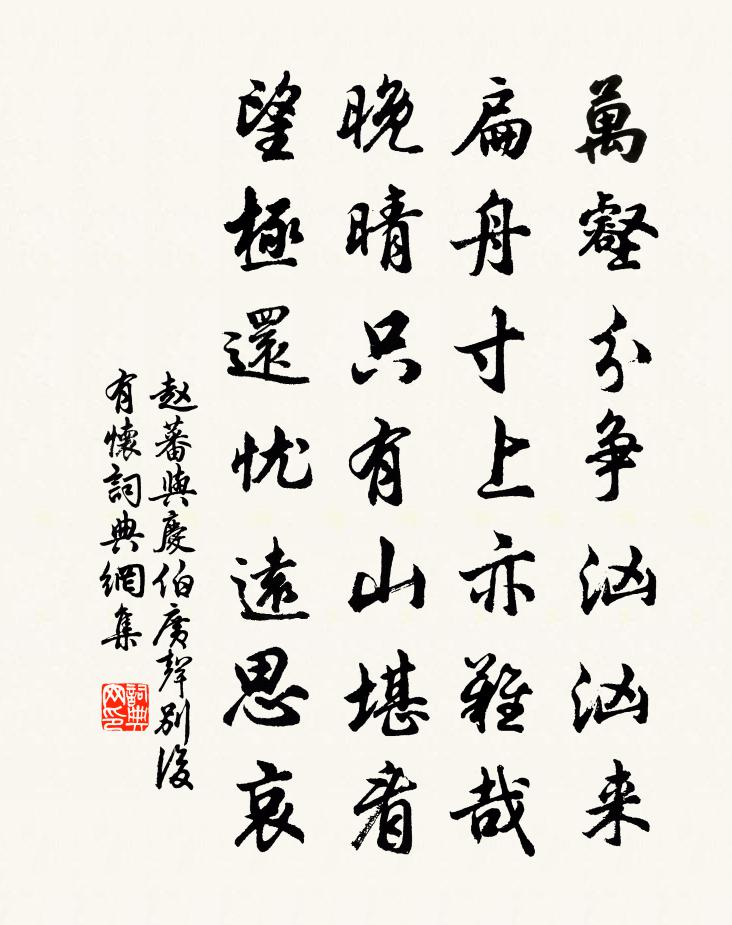 萬壑分争洶洶来
扁舟寸上亦難哉
晚晴只有山堪看
望極還忧遠思哀
赵蕃與慶伯廣聲别後
有懷詞典網集
詞典网印